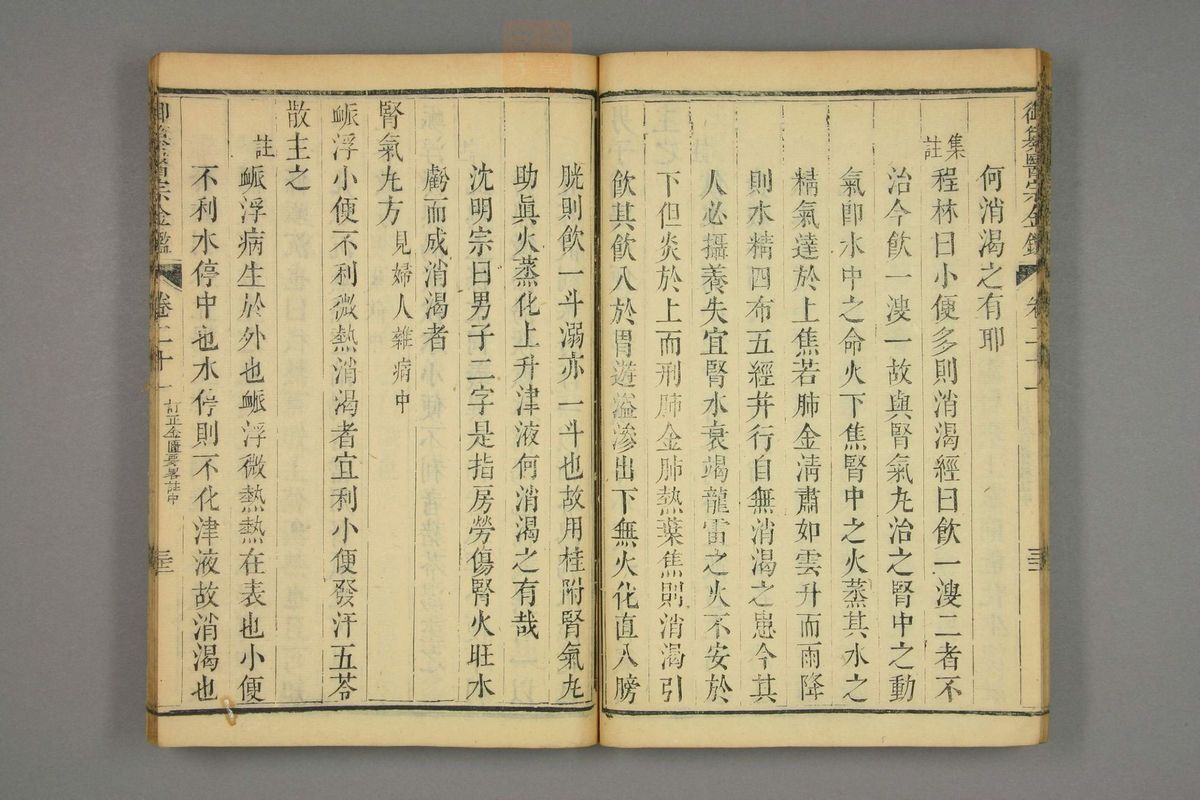 何消渴之有耶
集註
程林曰小便多則消渴經曰飲一溲二者不
治今飲一溲一故與腎氣丸治之腎中之動
氣卽水中之命火下焦腎中之火蒸其水之
精氣達於上焦若肺金清肅如雲升而雨降
則水精四布五經并行自無消渴之患今其
人必攝養失宜腎水衰竭龍雷之火不安於
下但炎於上而刑肺金肺熱葉焦則消渴引
飲其飲入於胃遊溢滲出下無火化直入膀
御纂醫宗金鑑
卷二十一
胱則飲一斗溺亦一斗也故用桂附腎氣丸
助眞火蒸化上升津液何消渴之有哉
沈明宗曰男子二字是指房勞傷腎火旺水
虧而成消渴者
腎氣丸方 見婦人雜病中
脈浮小便不利微熱消渴者宜利小便發汗五苓
散主之
註
脈浮病生於外也脈浮微熱熱在表也小便
不利水停中也水停則不化津液故消渴也
御纂醫宗金鑑
卷二十一
訂正金匱要畧註中